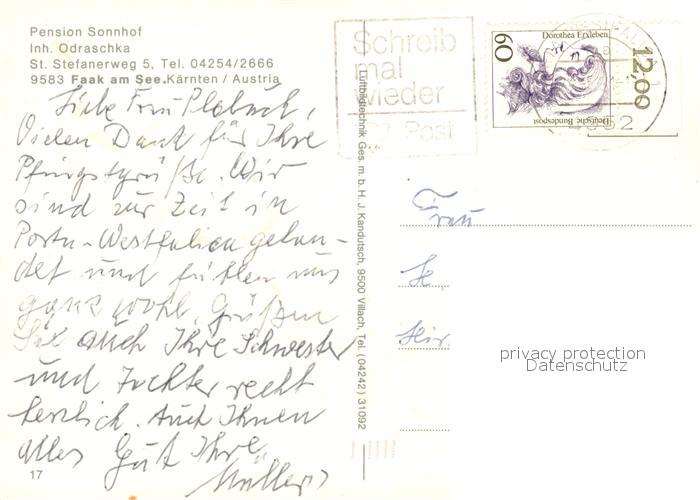 Pension Sonnhof
Inh. Odraschka
St. Stefanerweg 5, Tel. 04254/2666
9583 Faak am See.Kärnten / Austria
Liebe Frau
Vielen Dank für Ihre
Pfingstgrüße. Wir
sind zur Zeit in
Porta-Westfalica gelan-
det und fühlen uns
ganz wohl. Grüßen
Sie auch Ihre Schwester
und Tochter recht
herzlich. Auch Ihnen
alles Gute Ihre
Müllers
17
Luftbildtechnik Ges. m. b. H. J. Kandutsch, 9500 Villach, Tel. (04242) 31092
Schreib
mal
wieder
Post
Dorothea Erxleben
60
Deutsche Bundespost
12,00
4952
Frau
privacy protection
Datenschutz